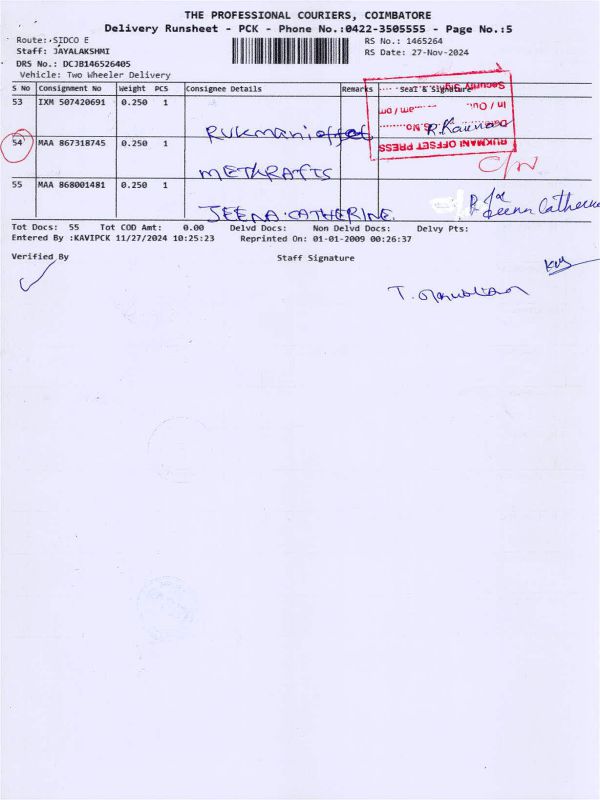 THE PROFESSIONAL COURIERS, COIMBATORE
Delivery Runsheet - PCK - Phone No.:0422-3505555 - Page No.:5
Route: SIDCO E
RS No.: 1465264
Staff: JAYALAKSHMI
RS Date: 27-Nov-2024
DRS No.: DCJB146526405
Vehicle: Two Wheeler Delivery
S No Consignment No Weight PCS Consignee Details Remarks Seal & Signature
Security
In / Out am / pm
53 IXM 507420691 0.250 1 RUKMANI offset
RUKMANI OFFSET PRESS
54 MAA 867318745 0.250 1 METKRAFTS
55 MAA 868001481 0.250 1 JEENA.CATHERINE.
Tot Docs: 55 Tot COD Amt: 0.00 Delvd Docs: Non Delvd Docs: Delvy Pts:
Entered By :KAVIPCK 11/27/2024 10:25:23 Reprinted On: 01-01-2009 00:26:37
Verified By Staff Signature